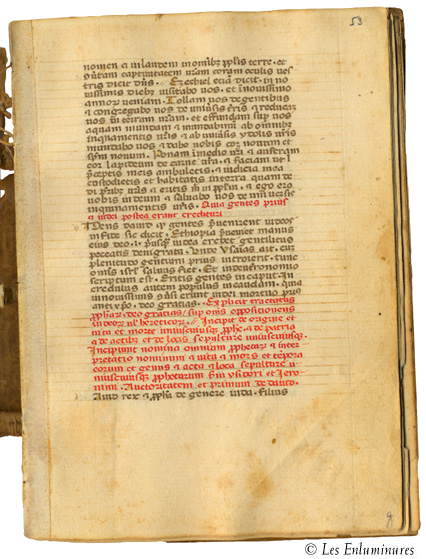 53
nomen et in laudem in omnibz pplis terre. et
captiuitatem uram coram oculis ues
tris dicit dns. Ezechiel etiā dicit. in no
uissimis diebz uisitabo uos. et in nouissimo
annor ueniam. Tollam uos de gentibus
et congregabo uos de uniuersis tris et reducam
uos in terram uram. et effundam sup uos
aquam mundam et mundabimi ab omnibz
inquinamentis uris et ab uniuersis ydolis uris
mundabo uos et dabo nobis cor nouum et
spm nouum. Ponam in medio uri et auferam
cor lapideum de carne ura. et faciam ut
preceptis meis ambuletis. et iudicia mea
custodietis et habitetis in terra quam de
di pribz uris et eritis m in pplm. et ego ero
uobis in deum et saluabo uos de universis
inquinamentis uris. Quia gentes prius
et iudei postea erant credituri
Dens dauid qd gentes pueniret iudeos
in fide sic dicit. Ethiopia pueniet manus
eius deo. i. prusqm iudea credet gentilitas
peccatis denigrata. Unde ysaias ait. cum
plenitudo gentium prius introierit. tunc
omnis isrl saluus fiet. Et in deuteronomio
scriptum est. Eritis gentes in caput. in
credulus autem populus in caudam. Quia
in nouissimis quasi erunt iudei mortuo pmo
anti xpo. deo gratias. Explicit tractatus
pphar. deo gratias sup omnis oppositiones
iudeor uel hereticor. Incipit de origine et
uita et morte uniuscuiusqz pphe. et de patria
et de actibz et de locis sepulture uniuscuiusqz.
Incipiunt nomina omnium pphetar et inter
pretatio nominum et uita et mors et tēpora
eorum et genus et acta et loca sepulture u
niuscuiusqz pphetarum sm ysidori et Jero
nim. Auctoritatem et primum de dauid.
Dauid rex et ppha de genere iuda. filius
g
© Les Enluminures